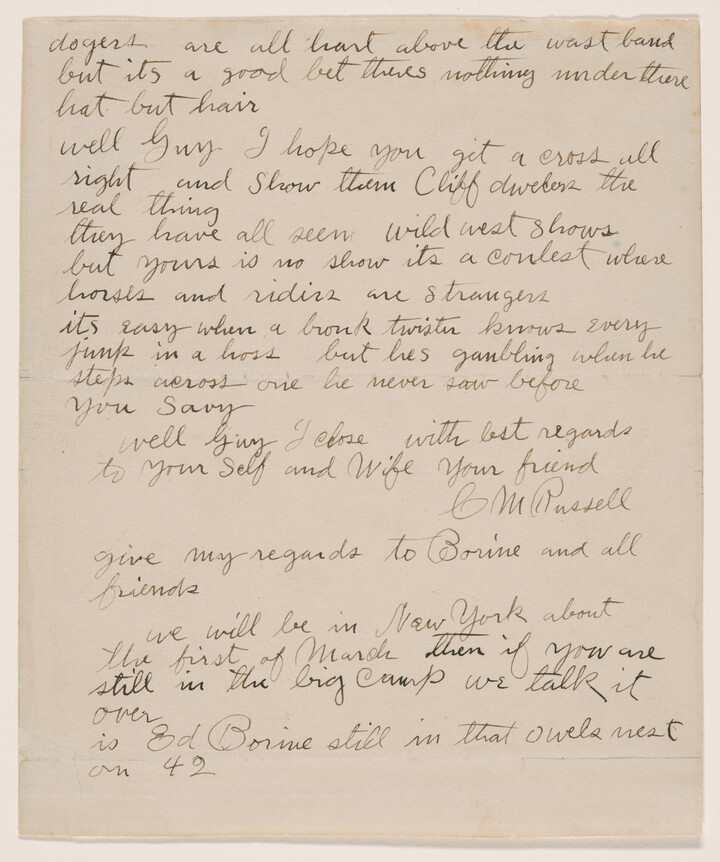 dogers are all hart above the wast band
but its a good bet theres nothing under there
hat but hair
well Guy I hope you get a cross all
right and Show them Cliff dwelers the
real thing
they have all seen wild west shows
but yours is no show its a contest where
horses and riders are strangers
its easy when a bronk twister knows every
jump in a hoss but hes gambling when he
steps across one he never saw before
you Savy
well Guy I close with best regards
to your Self and Wife your friend
C M Russell
give my regards to Borine and all
friends
we will be in New York about
the first of March then if you are
still in the big Camp we talk it
over
is Ed Borine still in that owels nest
on 42